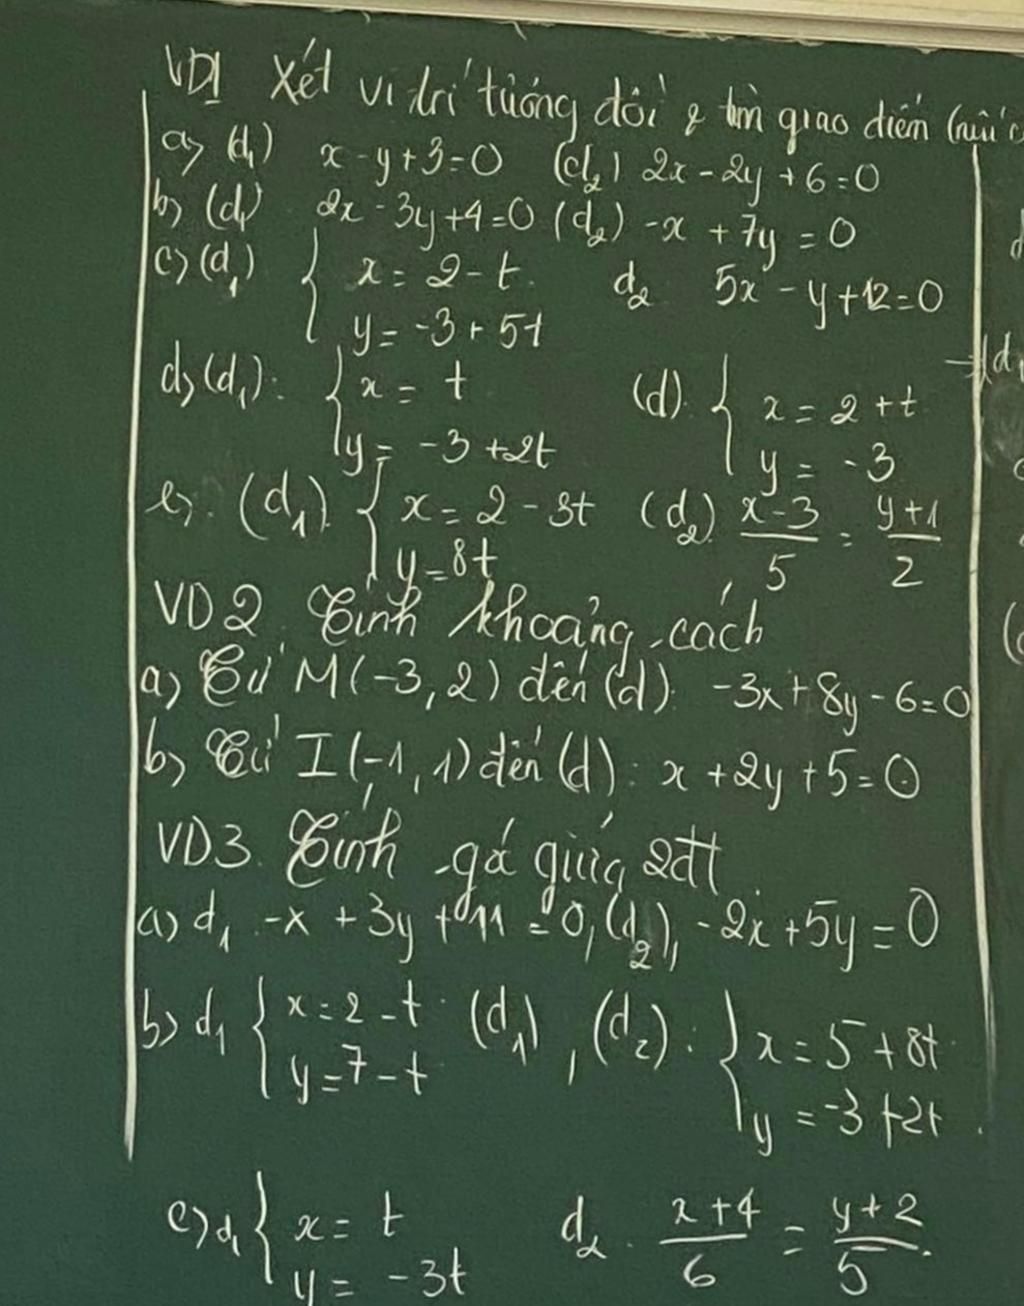 VD1 Xét vị trí tương đối & tìm giao điểm (nếu c
a) (d₁) x - y + 3 = 0 (d₂) 2x - 2y + 6 = 0
b) (d₁) 2x - 3y + 4 = 0 (d₂) -x + 7y = 0
c) (d₁) { x = 2 - t d₂ 5x - y + 12 = 0
y = -3 + 5t
d) (d₁): { x = t (d) { x = 2 + t
y = -3 + 2t y = -3
e). (d₁) { x = 2 - 3t (d₂) (x-3)/5 = (y+1)/2
y = 8t
VD2. Tính khoảng cách
a) Từ M(-3, 2) đến (d): -3x + 8y - 6 = 0
b) Từ I(-1, 1) đến (d): x + 2y + 5 = 0
VD3. Tính gá giữa 2đt
a) d₁ -x + 3y + 11 = 0, (d₂), -2x + 5y = 0
b) d₁ { x = 2 - t (d₁), (d₂): { x = 5 + 8t
y = 7 - t y = -3 + 2t.
c) d₁ { x = t d₂. (x+4)/6 = (y+2)/5.
y = -3t